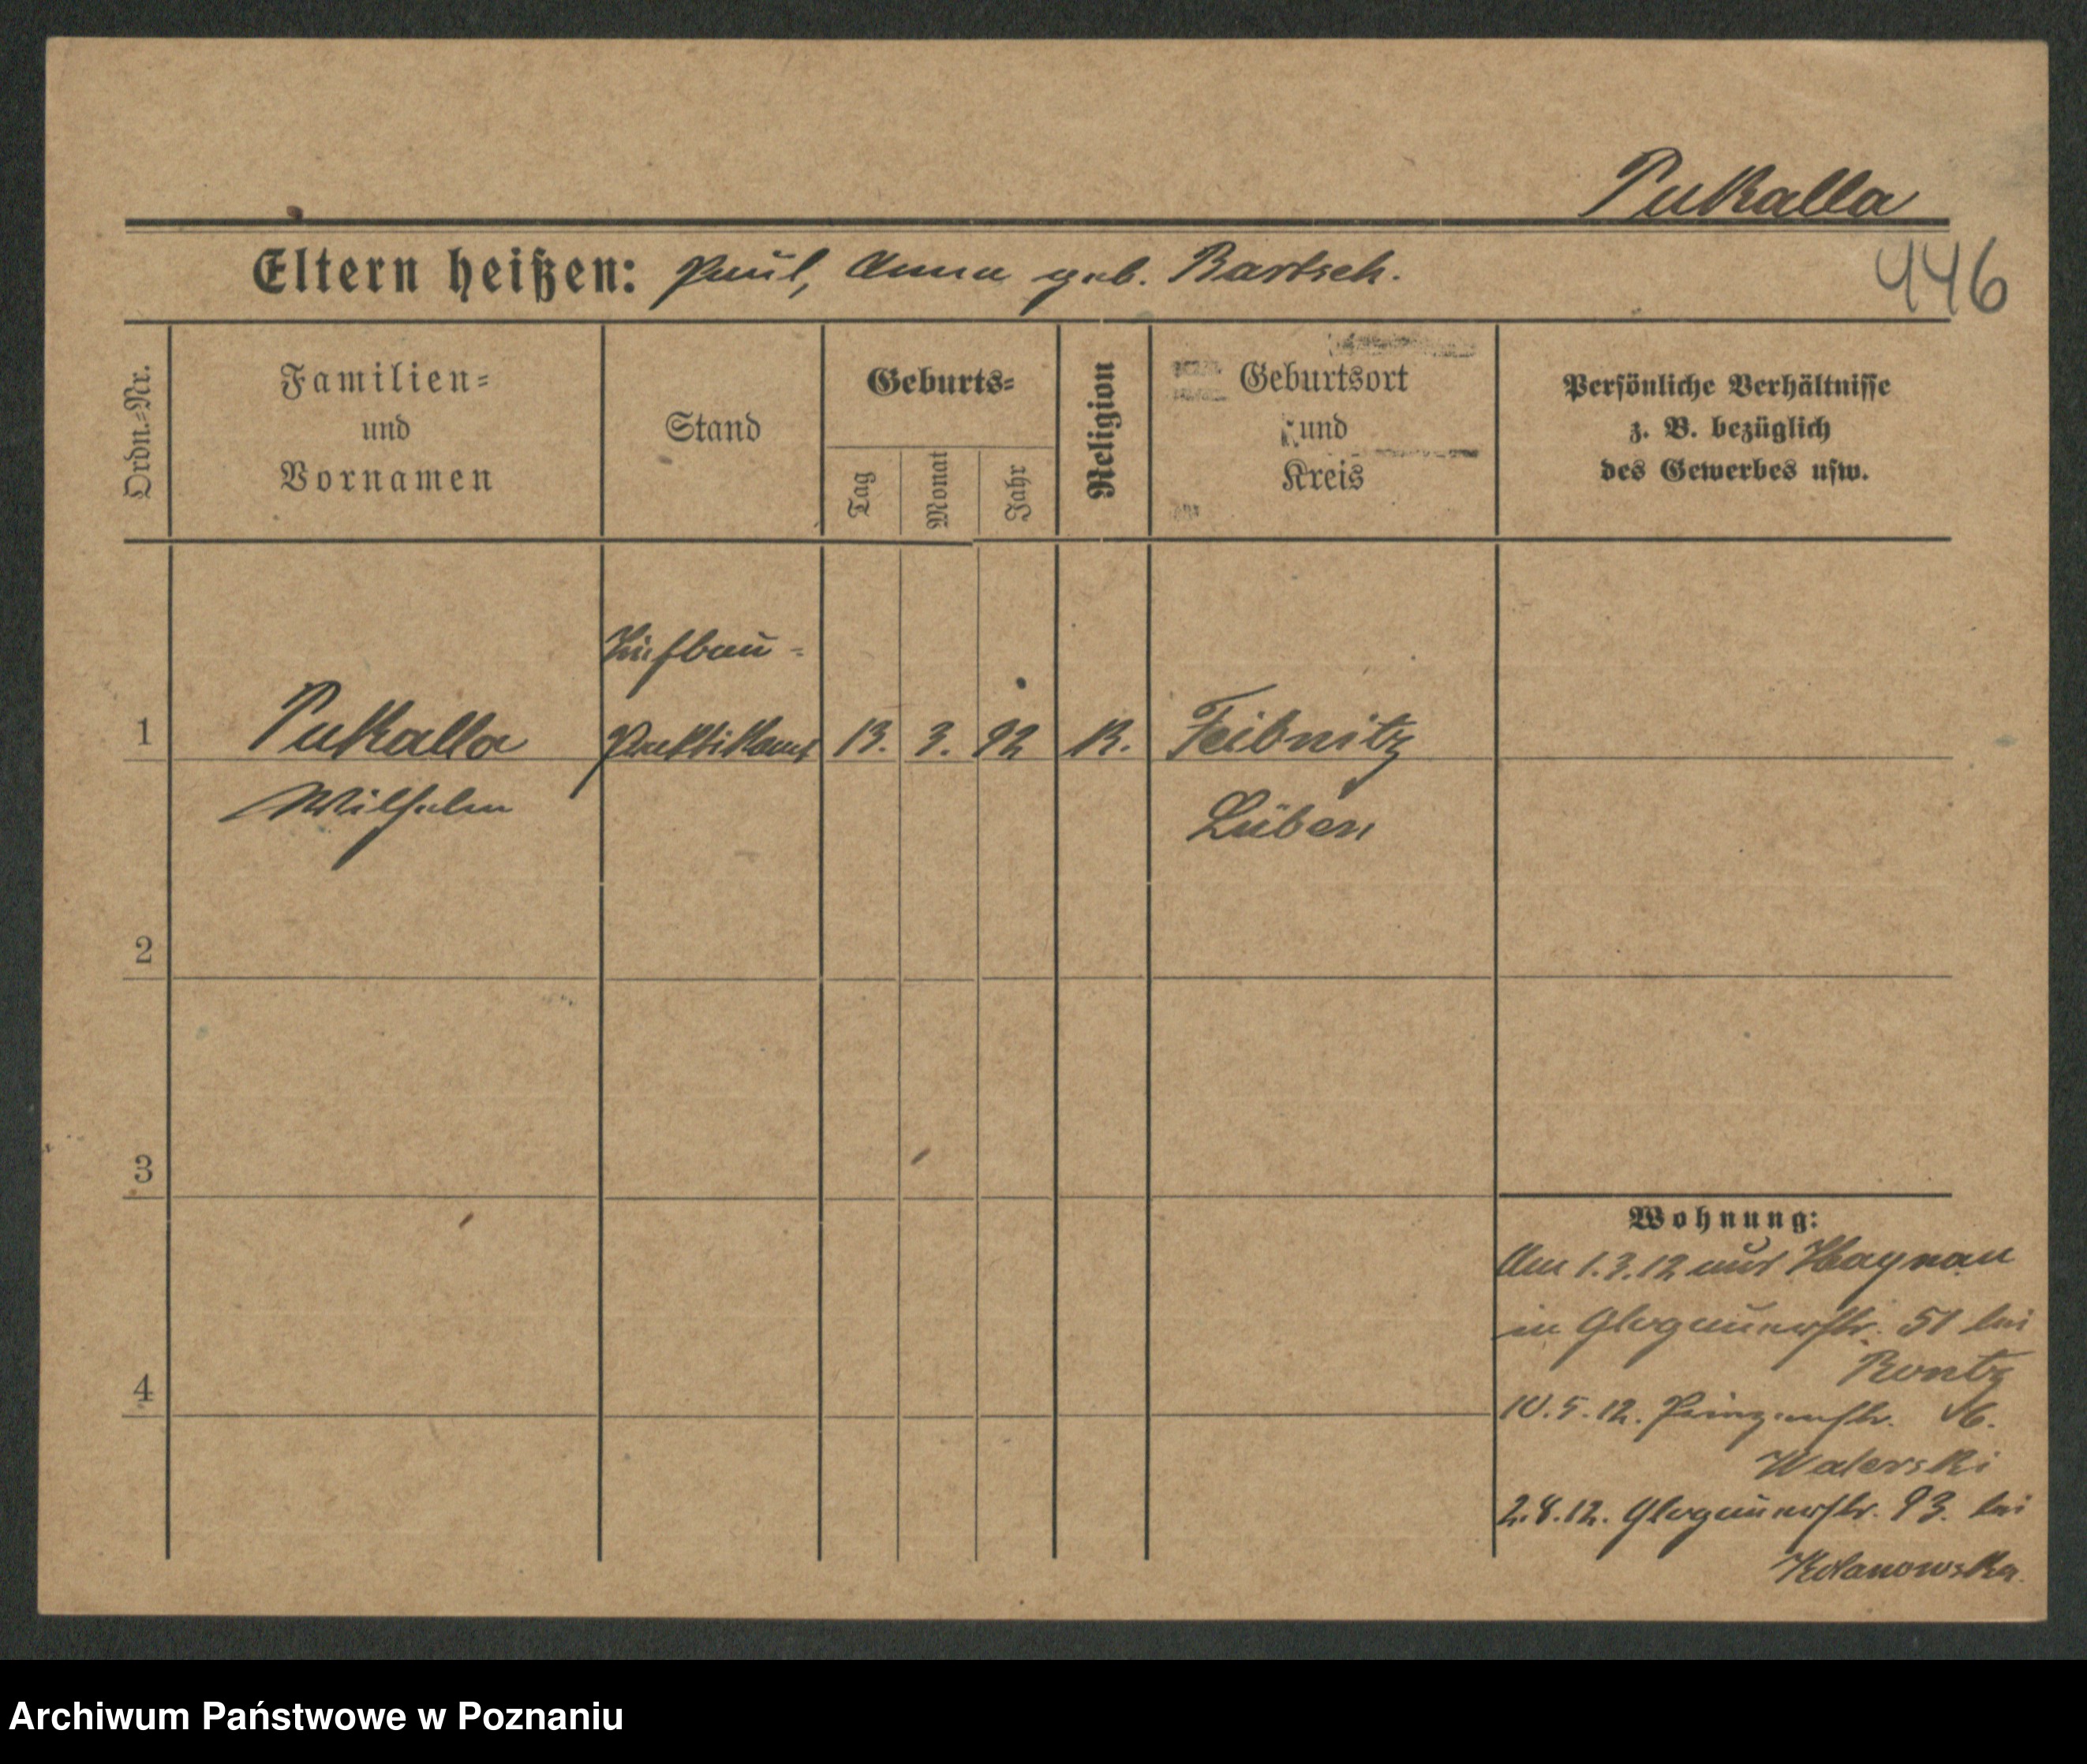 Pukalla
Eltern heißen: Paul, Anna geb. Bartsch.
446
Ordn.-Nr.
Familien-
und
Vornamen
Stand
Geburts-
Tag
Monat
Jahr
Religion
Geburtsort
und
Kreis
Persönliche Verhältnisse
z. B. bezüglich
des Gewerbes usw.
Tiefbau-
1 Pukalla Praktikant 13. 3. 92 K. Feibnitz
Wilhelm Lüben
2
3
Wohnung:
Am 1.3.12 aus Haynau
in Glogauerstr. 51 bei
Rontz
4
10.5.12. Prinzenstr. 6.
Walerski
2.8.12. Glogauerstr. 93. bei
Kolanowska.
Archiwum Państwowe w Poznaniu